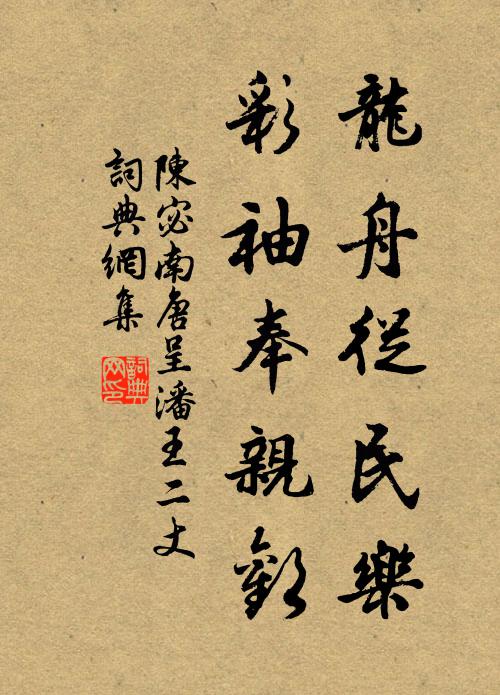 龍舟從民樂
彩袖奉親歡
陳宓南唐呈潘王二丈
詞典網集
詞典网印